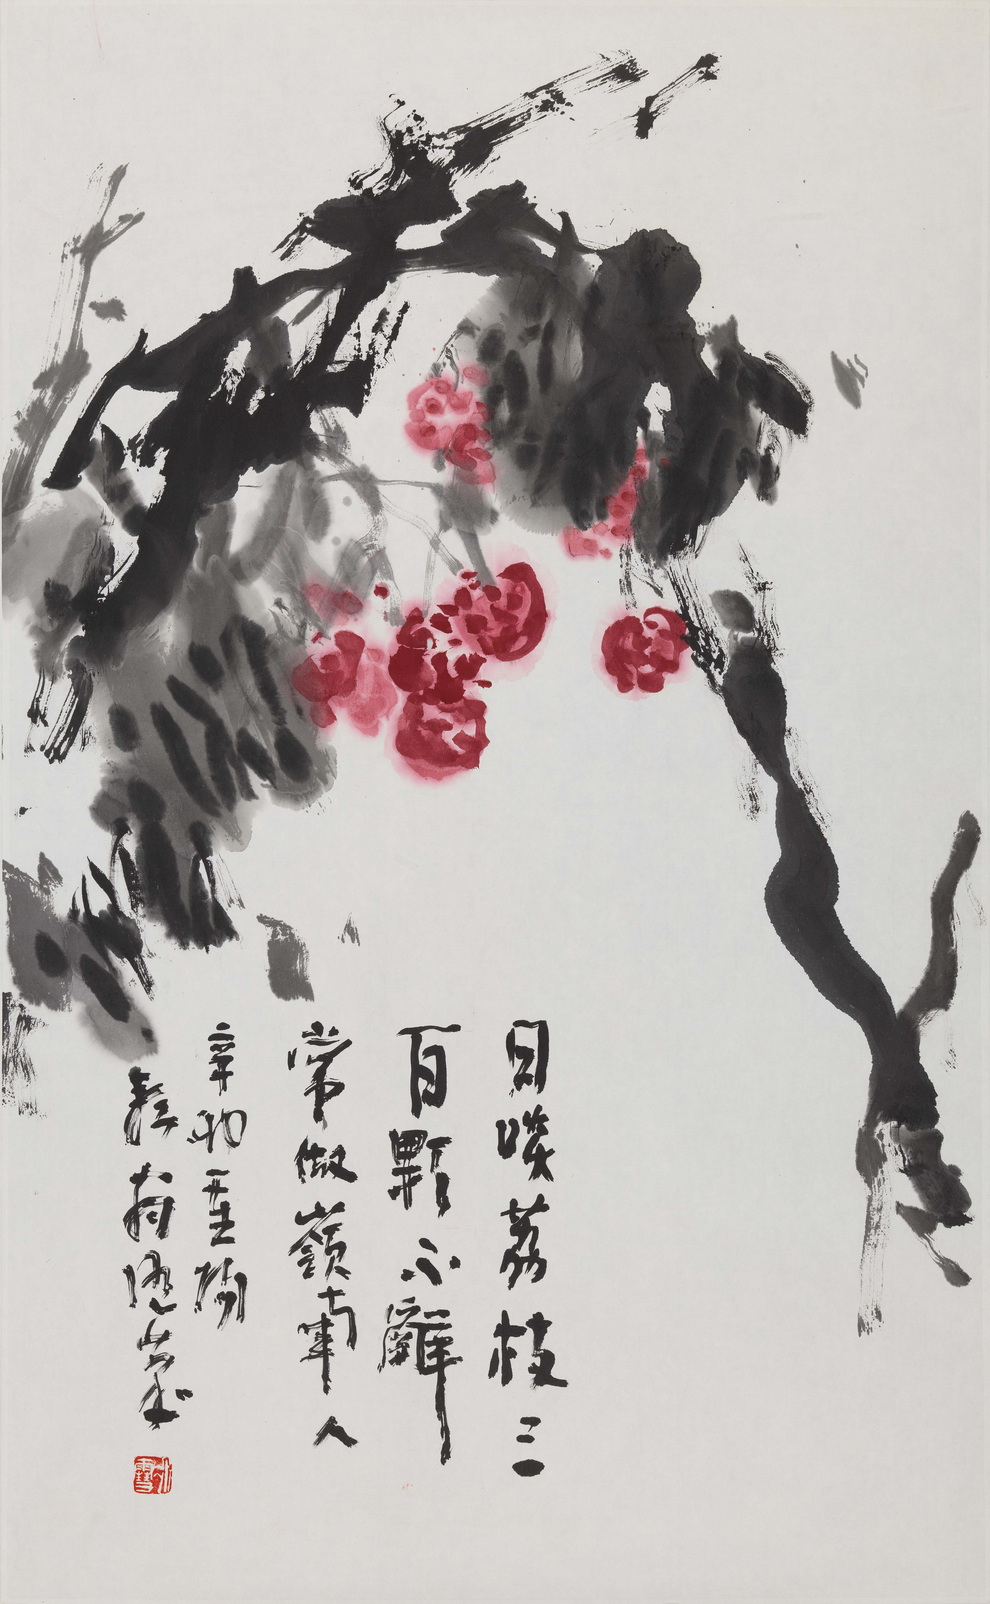 日啖荔枝三
百顆不辭
常做嶺南人
辛卯重陽